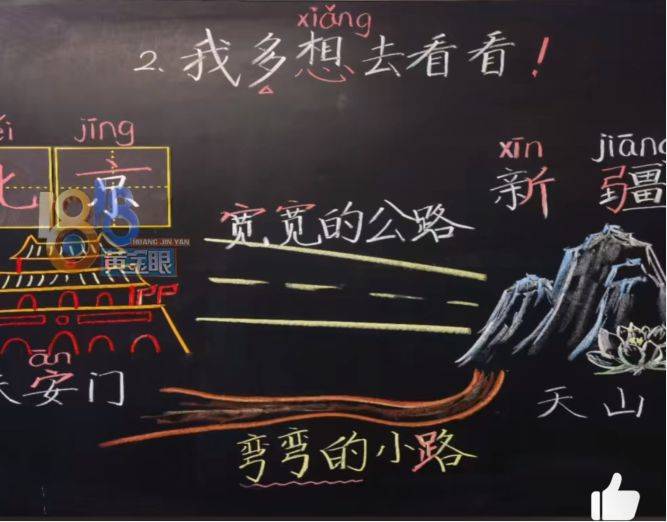 xiǎng
2.我多想去看看！
jīng
北京
xīn jiāng
新疆
宽宽的公路
1818
HUANG JIN YAN
黄金眼
ān
天安门
天山
弯弯的小路